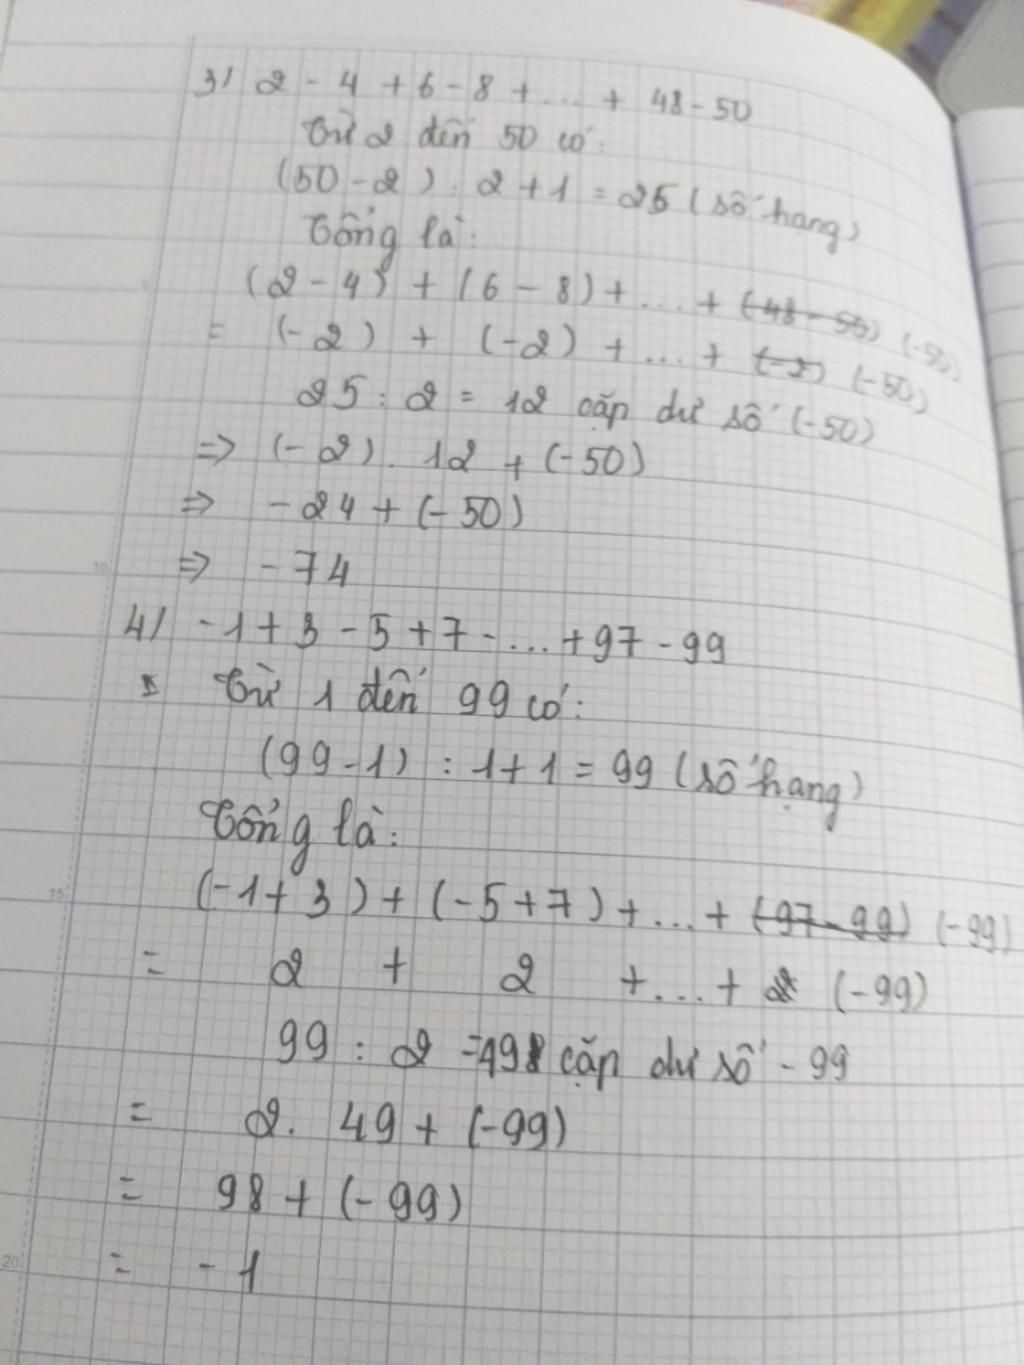 3) 2 - 4 + 6 - 8 + ... + 48 - 50
Từ 2 đến 50 có:
(50 - 2) : 2 + 1 = 25 (số hạng)
Tổng là:
(2 - 4) + (6 - 8) + ... + (48 - 50) (-50)
= (-2) + (-2) + ... + (-2) (-50)
25 : 2 = 12 cặp dư số (-50)
=> (-2) . 12 + (-50)
=> -24 + (-50)
=> -74
4) -1 + 3 - 5 + 7 - ... + 97 - 99
Từ 1 đến 99 có:
(99 - 1) : 1 + 1 = 99 (số hạng)
Tổng là:
(-1 + 3) + (-5 + 7) + ... + (97 - 99) (-99)
= 2 + 2 + ... + 2 (-99)
99 : 2 = 49 cặp dư số -99
= 2 . 49 + (-99)
= 98 + (-99)
= -1